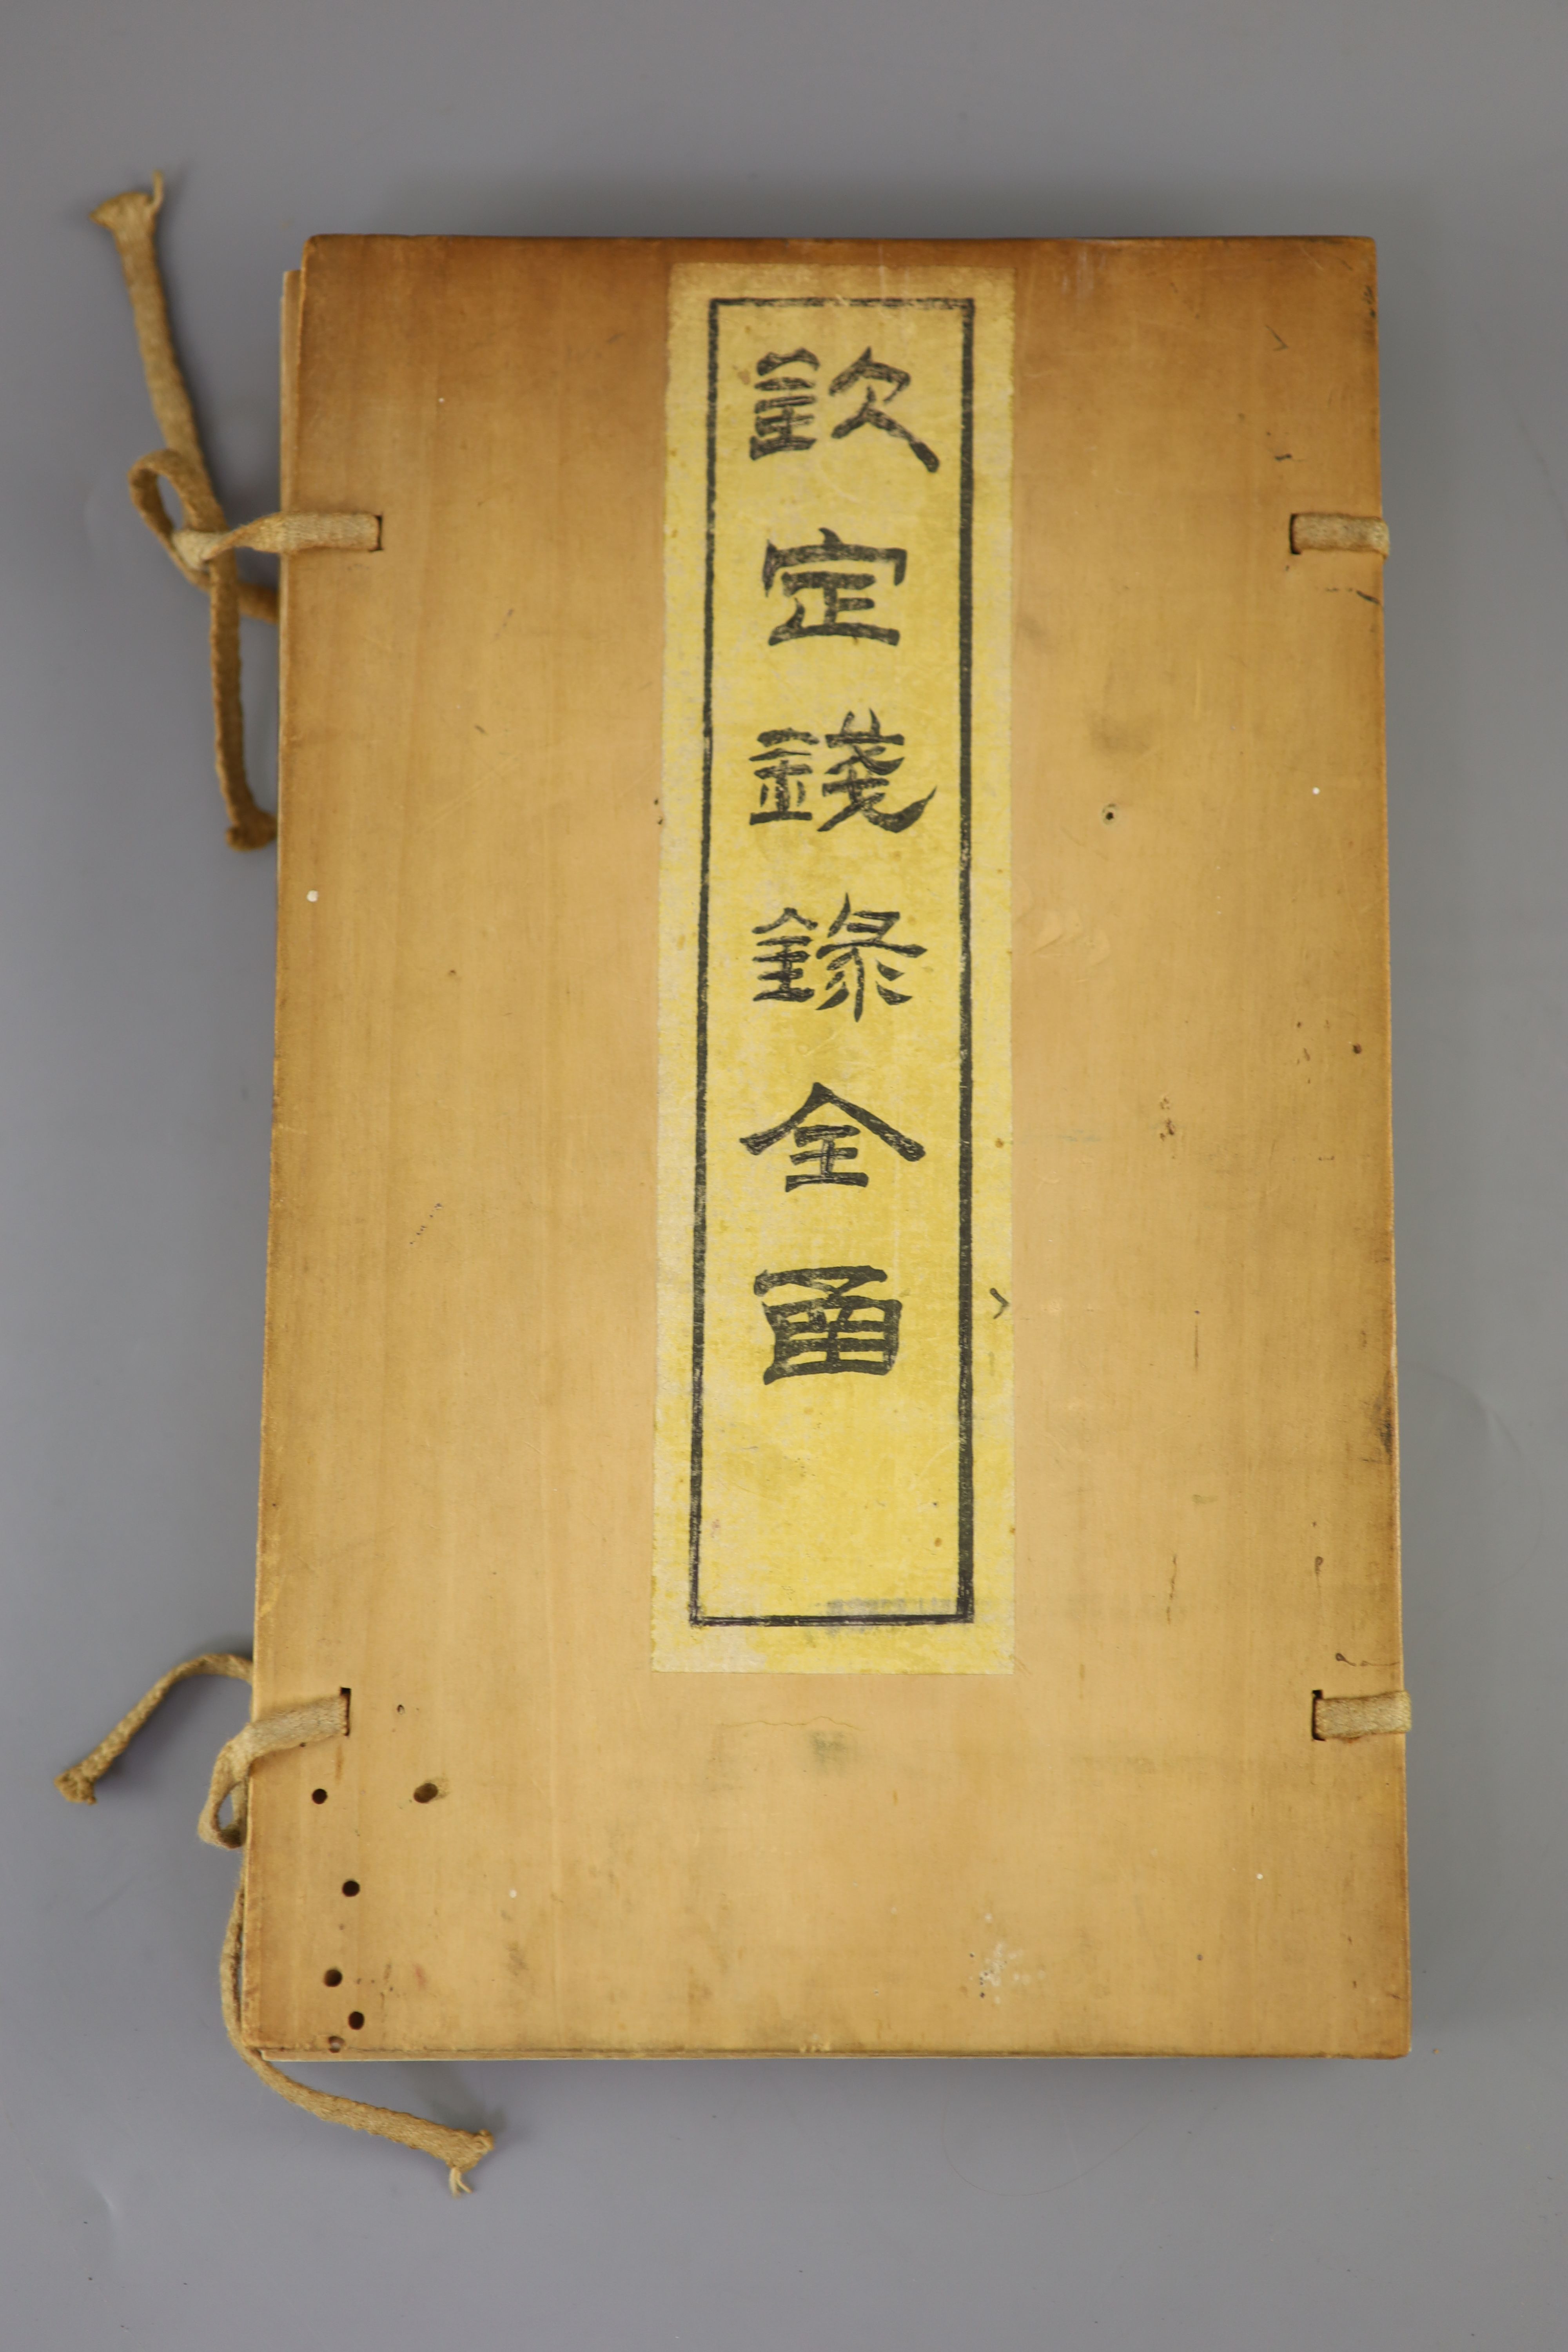 欽定錢錄全函